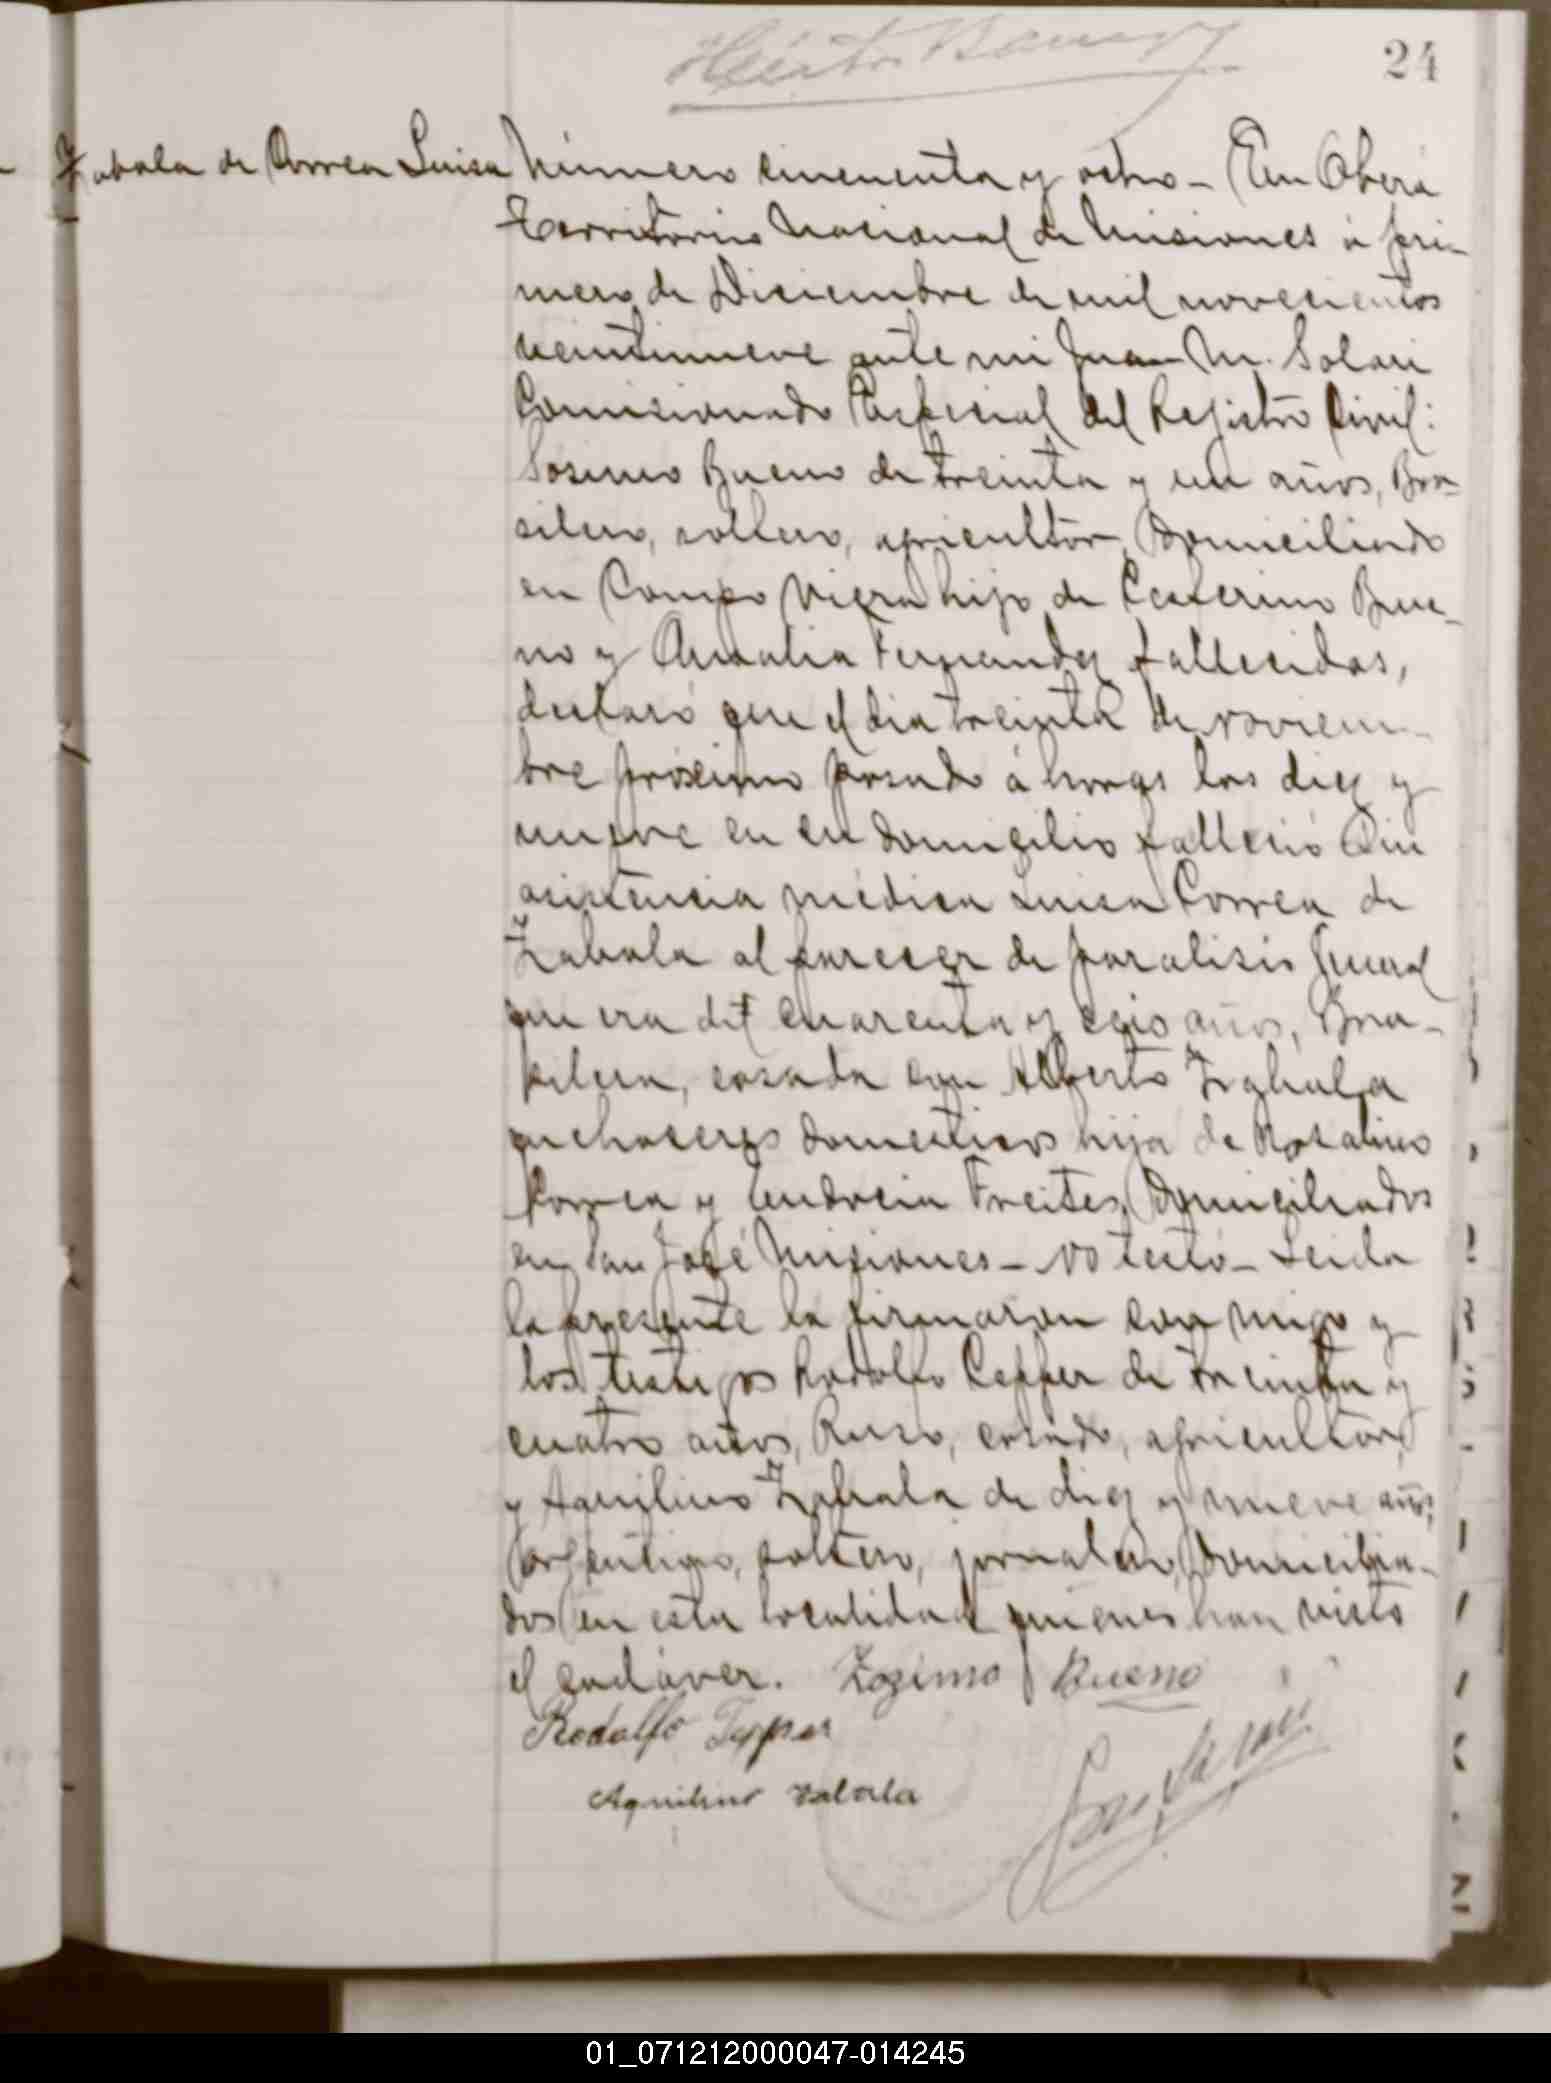 Héctor
24
Zabala de Correa Luisa
Número cincuenta y ocho - En Oberá
Territorio Nacional de Misiones á pri-
mero de Diciembre de mil novecientos
veintinueve ante mi Juan M. Solari
Comisionado Especial del Registro Civil:
Sosimo Bueno de treinta y un años, Bra-
silero, soltero, agricultor, domiciliado
en Campo Viera hijo de Ceferino Bue-
no y Amalia Fernandez fallecidos,
declaró que el dia treinta de noviem-
bre próximo pasado á horas las diez y
nueve en su domicilio falleció sin
asistencia médica Luisa Correa de
Zabala al parecer de paralisis general
que era de cuarenta y seis años, Bra-
silera, casada con Alberto Zabala
quehaceres domesticos hija de Rosalino
Correa y Eudocia Freites, domiciliados
en San José Misiones - No testó - Leida
la presente la firmaron con migo y
los testigos Rodolfo Tepper de treinta y
cuatro años, Ruso, casado, agricultor,
y Aquilino Zabala de diez y nueve años,
argentino, soltero, jornalero, domicilia-
dos en esta localidad quienes han visto
el cadáver. Zozimo Bueno
Rodolfo Tepper
Aquilino Zabala
01_071212000047-014245